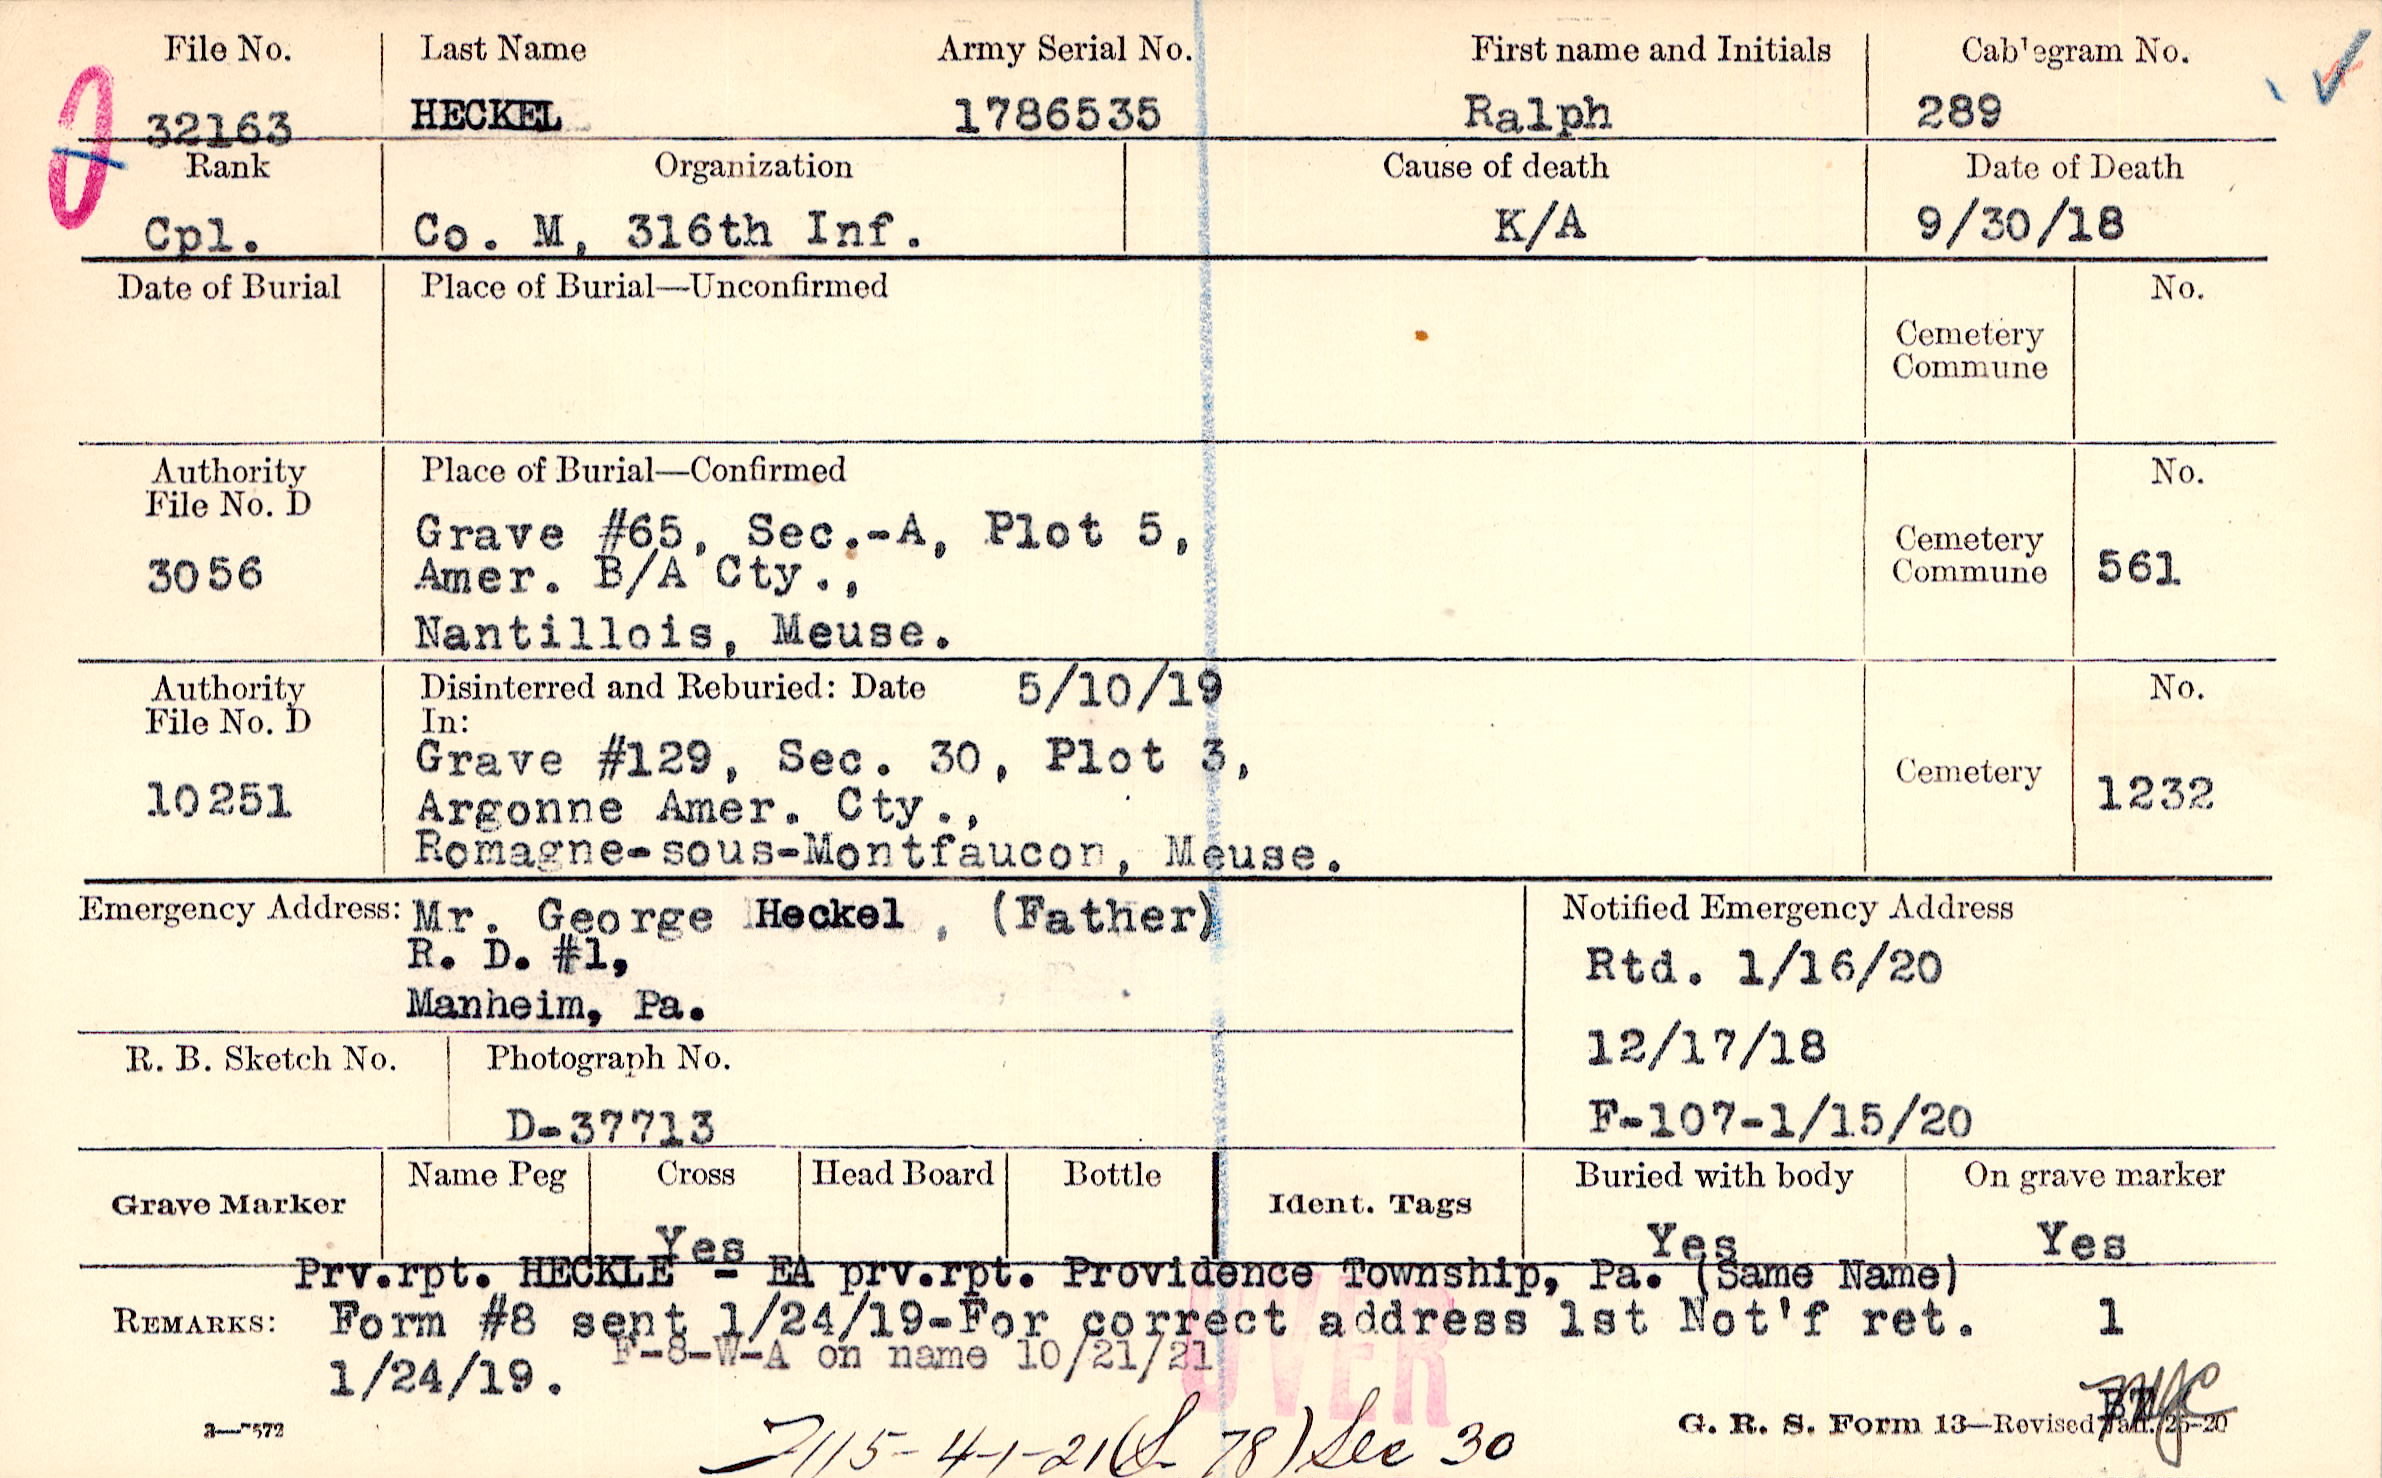 File No. Last Name Army Serial No. First name and Initials Cablegram No.
32163 HECKEL 1786535 Ralph 289
Rank Organization Cause of death Date of Death
Cpl. Co. M, 316th Inf. K/A 9/30/18
Date of Burial Place of Burial—Unconfirmed No.
Cemetery
Commune
Authority Place of Burial—Confirmed No.
File No. D
Grave #65, Sec.-A, Plot 5,
3056 Amer. B/A Cty., Cemetery Commune 561
Nantillois, Meuse.
Authority Disinterred and Reburied: Date 5/10/19 No.
File No. D In:
Grave #129, Sec. 30, Plot 3,
10251 Argonne Amer. Cty., Cemetery 1232
Romagne-sous-Montfaucon, Meuse.
Emergency Address: Mr. George Heckel, (Father) Notified Emergency Address
R. D. #1, Rtd. 1/16/20
Manheim, Pa.
12/17/18
R. B. Sketch No. Photograph No.
D-37713 F-107-1/15/20
Grave Marker Name Peg Cross Head Board Bottle Ident. Tags Buried with body On grave marker
Yes Yes Yes
Prv.rpt. HECKLE - EA prv.rpt. Providence Township, Pa. (Same Name)
REMARKS: Form #8 sent 1/24/19-For correct address 1st Not'f ret. 1
F-8-W-A on name 10/21/21
1/24/19.
OVER
G. R. S. Form 13—Revised Jan. 26-20
7115-4-1-21 (S 78) Sec 30